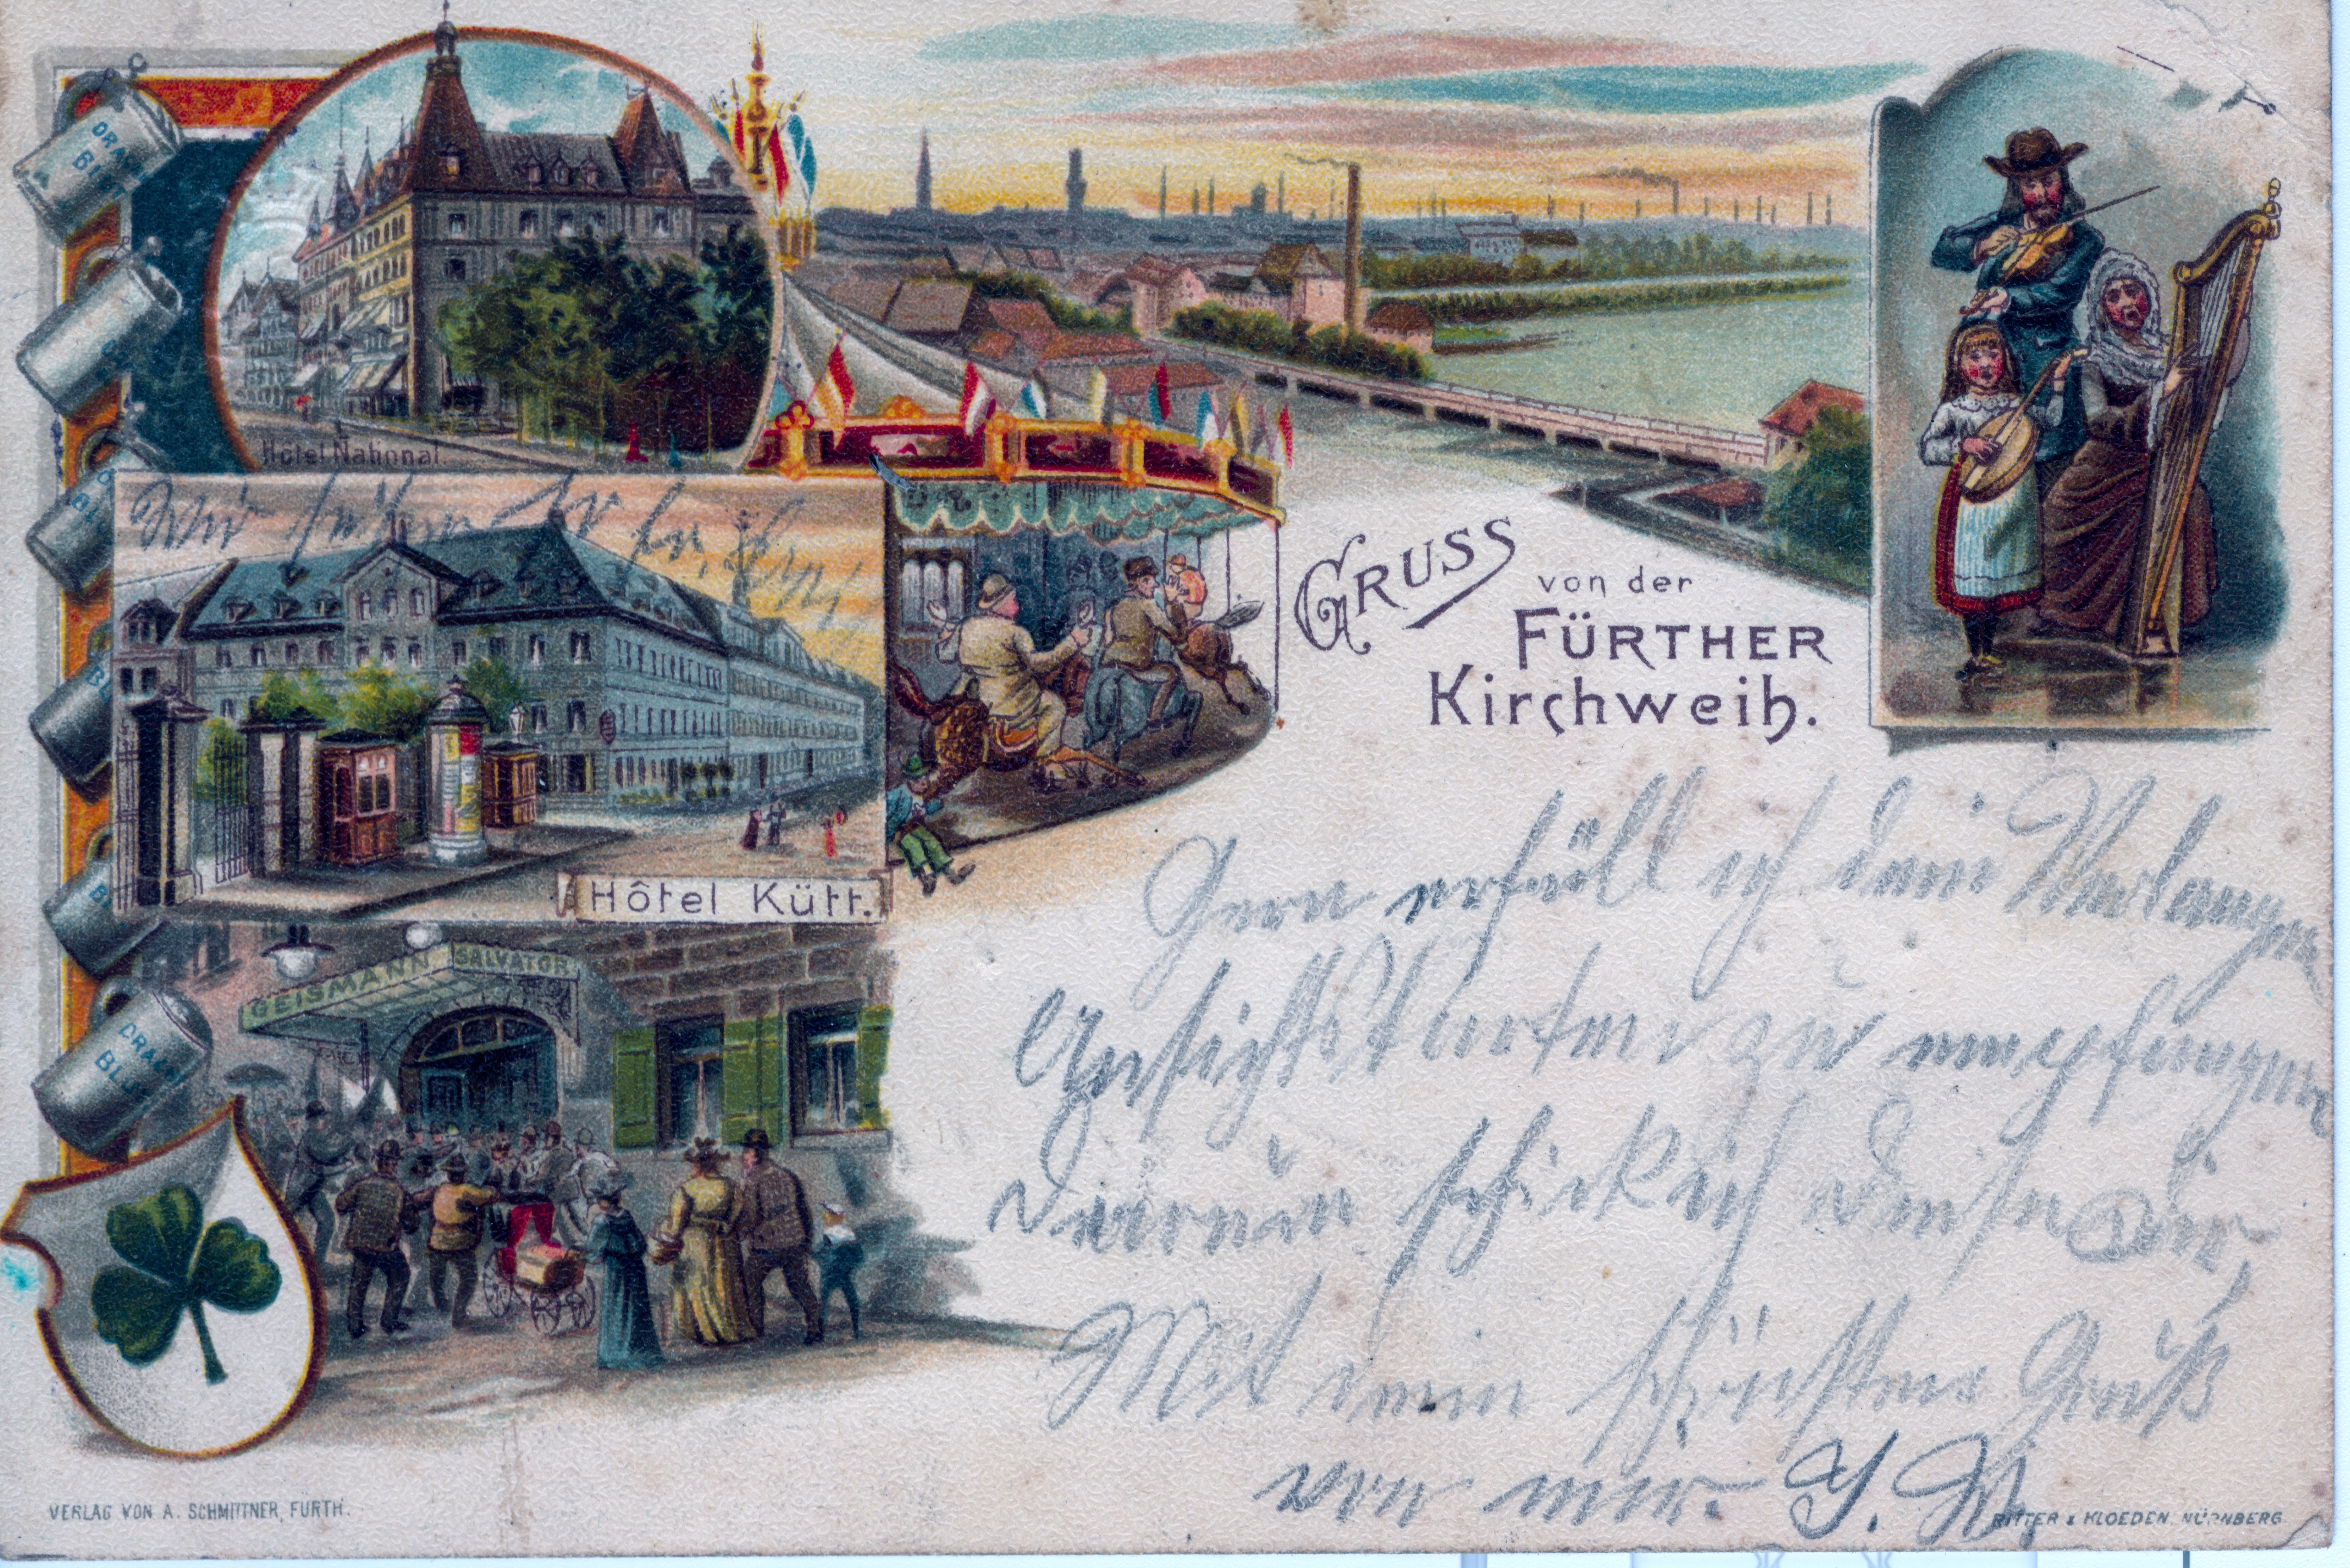 Hôtel National.
GRUSS
von der
FÜRTHER
Kirchweih.
Wir
Hôtel Kütt.
GEISMANN SALVATOR
Gern erfüll ich dein Verlangen
Ansichtskarten zu empfangen
darum schick ich diese Dir,
Mit dem schönsten Gruß
von mir.
VERLAG VON A. SCHMITTNER, FÜRTH.
RITTER & KLOEDEN, NÜRNBERG